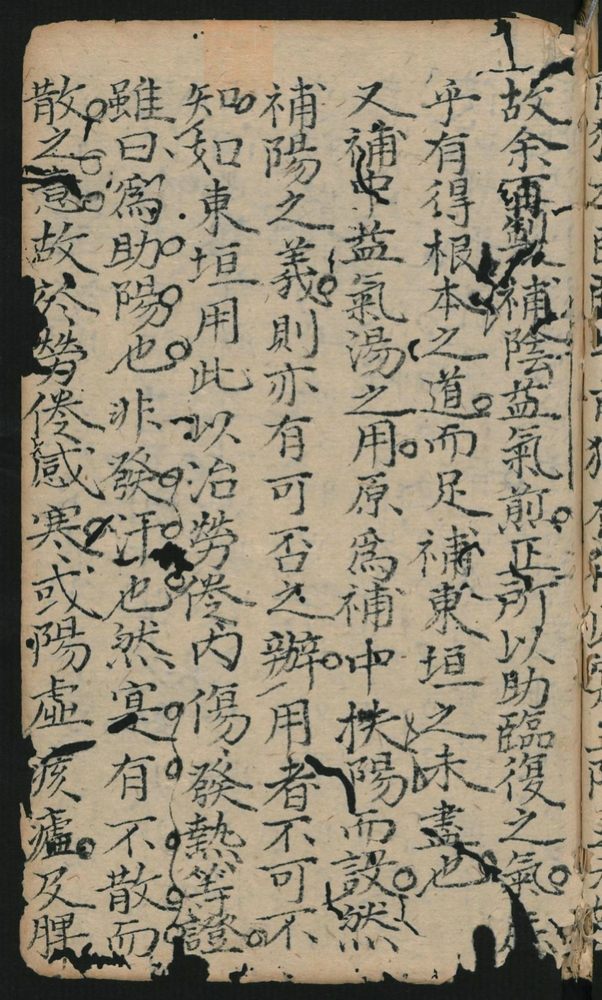 故余再製補陰益氣煎正所以助臨復之氣庶
乎有得根本之道而足補東垣之未盡也
又補中益氣湯之用原爲補中扶陽而設然
補陽之義則亦有可否之辦用者不可不
知如東垣用此以治勞倦內傷發熱等證
雖曰爲助陽也非發汗也然寔有不散而
散之意故於勞倦感寒或陽虛痎瘧及脾